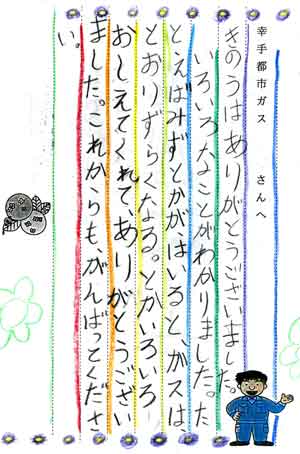 幸手都市ガス　さんへ
きのうはありがとうございました。
いろいろなことがわかりました。た
とえばみずとかがはいると、ガスは
とおりずらくなる。とかいろいろ
おしえてくれて、ありがとうござい
ました。これからも、がんばってくださ
い。